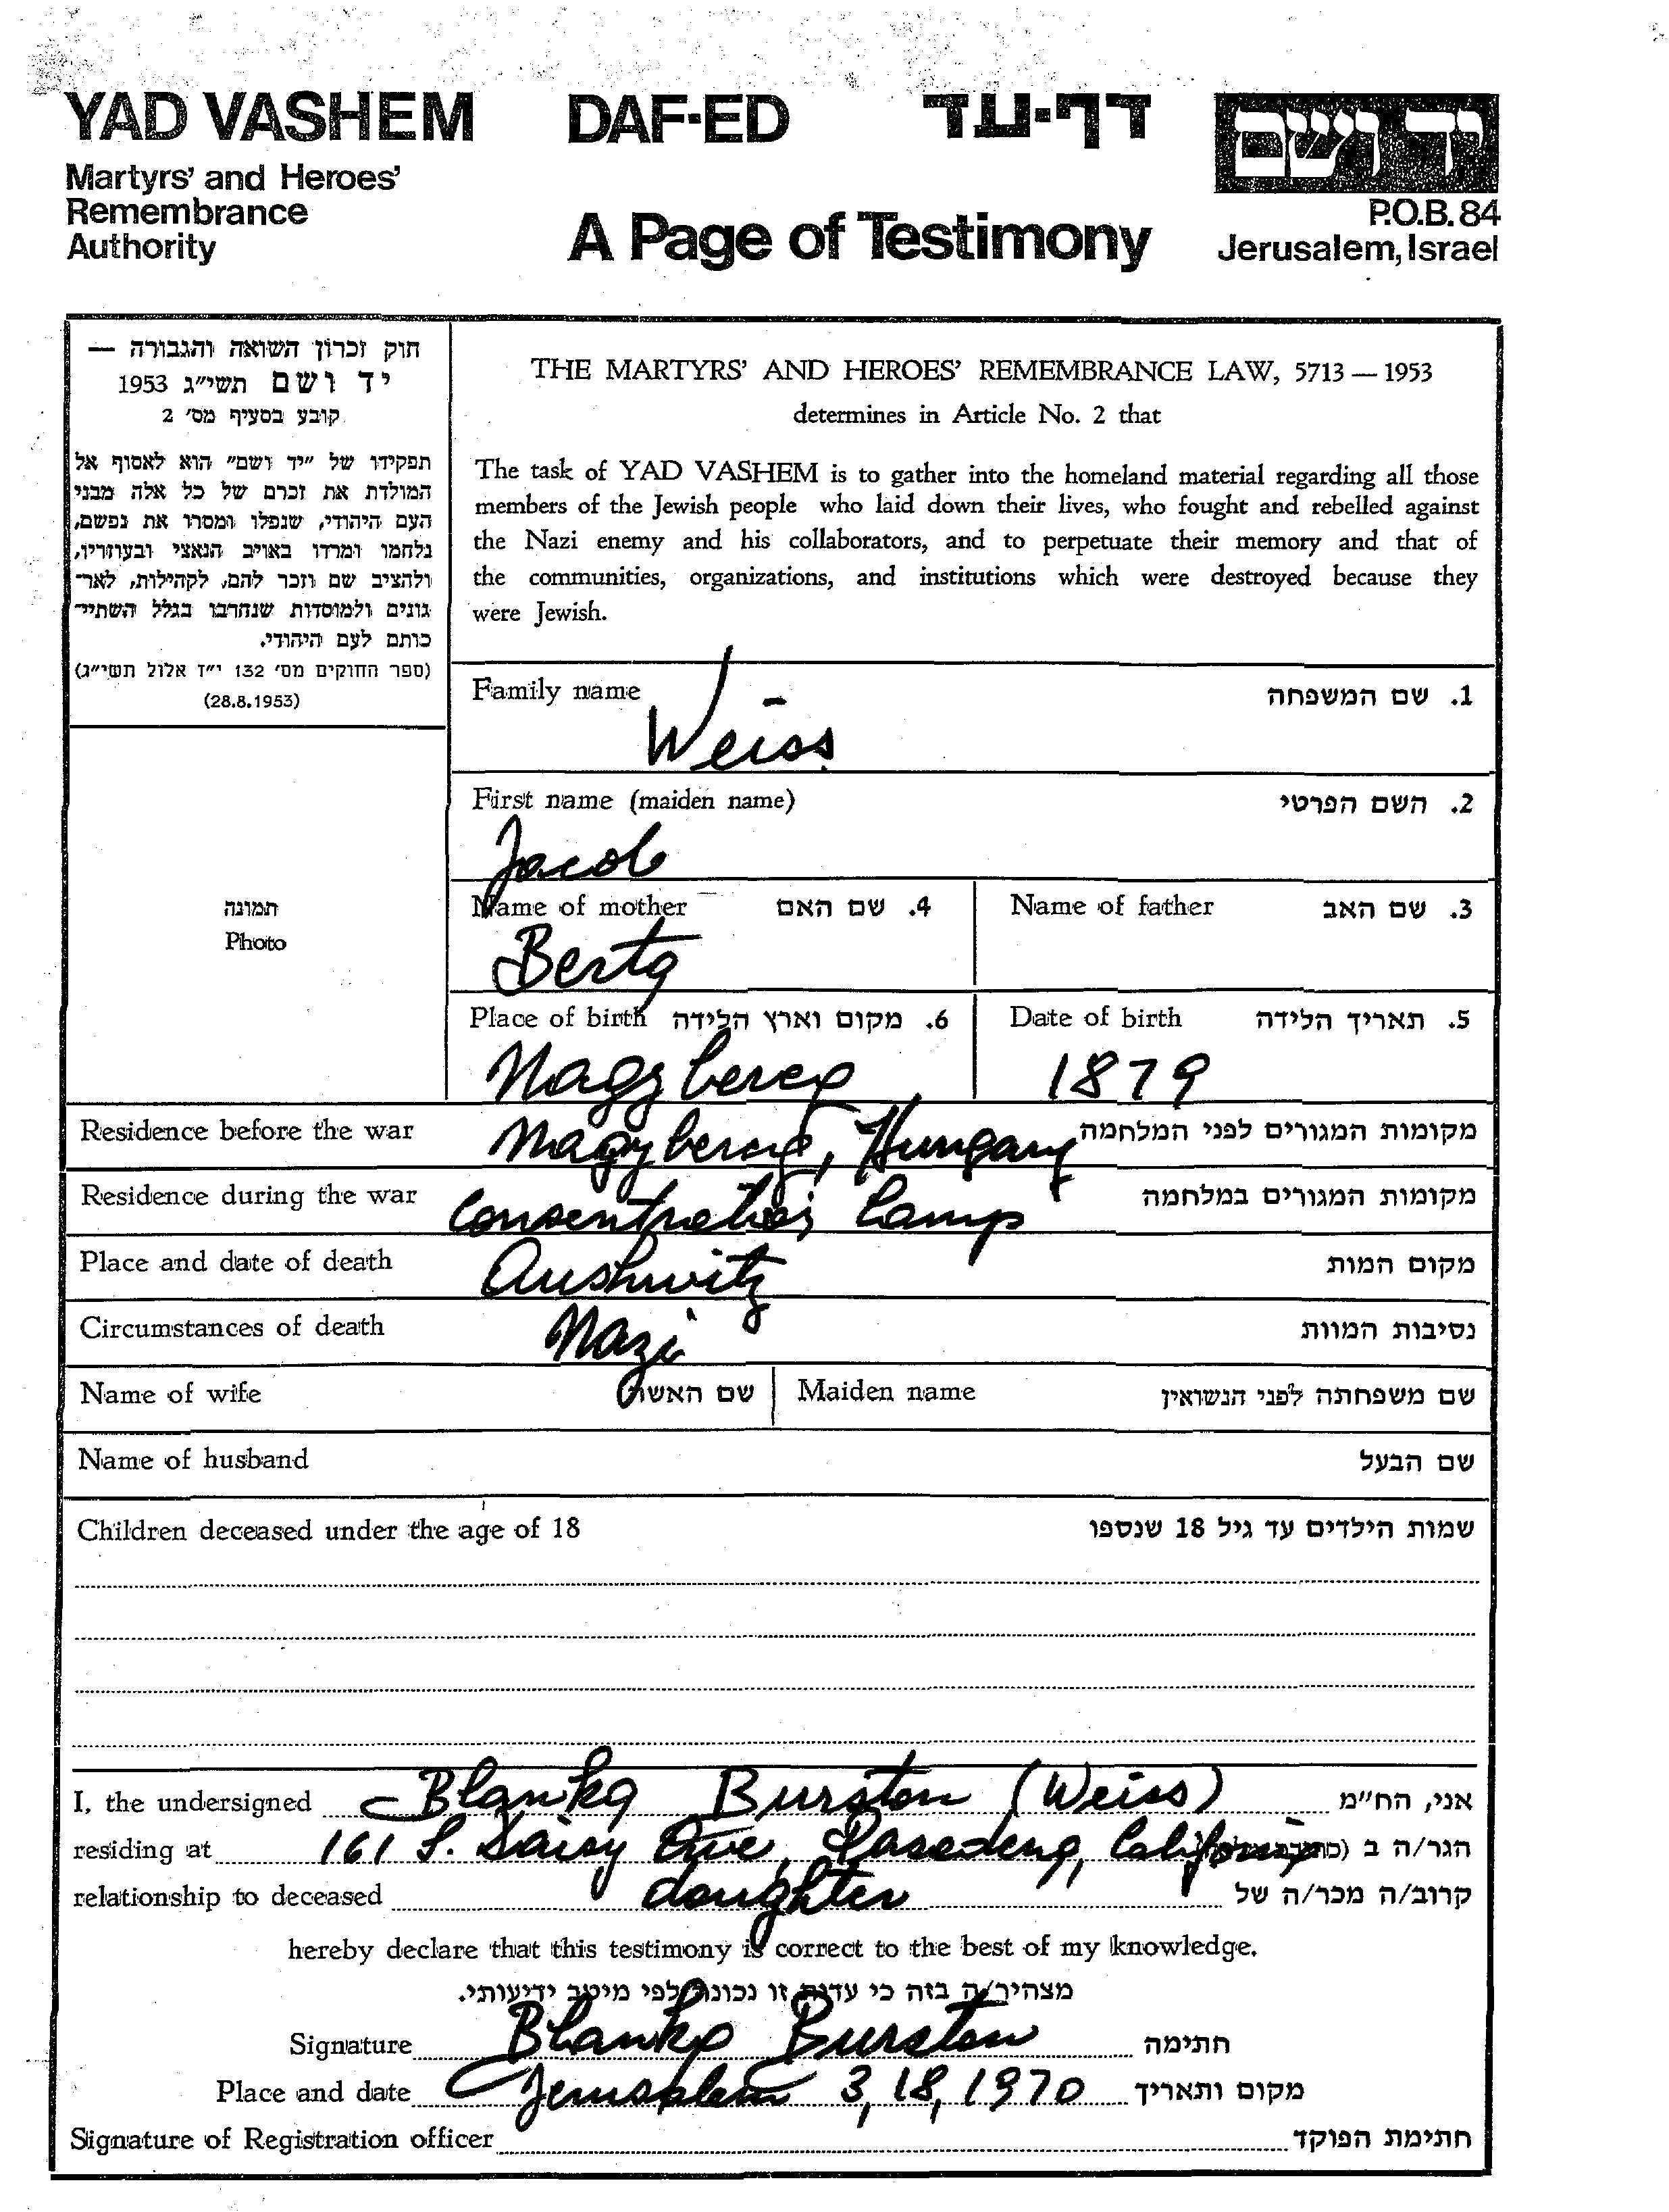 YAD VASHEM DAF-ED דף-עד יד ושם
Martyrs' and Heroes'
Remembrance
Authority
A Page of Testimony
P.O.B. 84
Jerusalem, Israel
חוק זכרון השואה והגבורה —
יד ושם תשי״ג 1953
קובע בסעיף מס׳ 2
תפקידו של ״יד ושם״ הוא לאסוף אל
המולדת את זכרם של כל אלה מבני
העם היהודי, שנפלו ומסרו את נפשם,
נלחמו ומרדו באויב הנאצי ובעוזריו,
ולהציב שם וזכר להם, לקהילות, לאר־
גונים ולמוסדות שנחרבו בגלל השתיי־
כותם לעם היהודי.
(ספר החוקים מס׳ 132 י״ז אלול תשי״ג)
(28.8.1953)
THE MARTYRS' AND HEROES' REMEMBRANCE LAW, 5713 — 1953
determines in Article No. 2 that
The task of YAD VASHEM is to gather into the homeland material regarding all those
members of the Jewish people who laid down their lives, who fought and rebelled against
the Nazi enemy and his collaborators, and to perpetuate their memory and that of
the communities, organizations, and institutions which were destroyed because they
were Jewish.
תמונה
Photo
Family name 1. שם המשפחה
Weiss
First name (maiden name) 2. השם הפרטי
Jacob
Name of mother 4. שם האם Name of father 3. שם האב
Berta
Place of birth 6. מקום וארץ הלידה Date of birth 5. תאריך הלידה
Nagybereg 1879
Residence before the war Nagybereg, Hungary מקומות המגורים לפני המלחמה
Residence during the war Consentration Camp מקומות המגורים במלחמה
Place and date of death Aushwitz מקום המות
Circumstances of death Nazi נסיבות המוות
Name of wife שם האשה Maiden name שם משפחתה לפני הנשואין
Name of husband שם הבעל
Children deceased under the age of 18 שמות הילדים עד גיל 18 שנספו
I, the undersigned Blanka Burston (Weiss) אני, הח״מ
residing at 161 S. Daisy Ave, Pasadena, California הגר/ה ב
relationship to deceased daughter קרוב/ה מכר/ה של
hereby declare that this testimony is correct to the best of my knowledge.
מצהיר/ה בזה כי עדות זו נכונה לפי מיטב ידיעותי.
Signature Blanka Burston חתימה
Place and date Jerusalem 3,18,1970 מקום ותאריך
Signature of Registration officer חתימת הפוקד